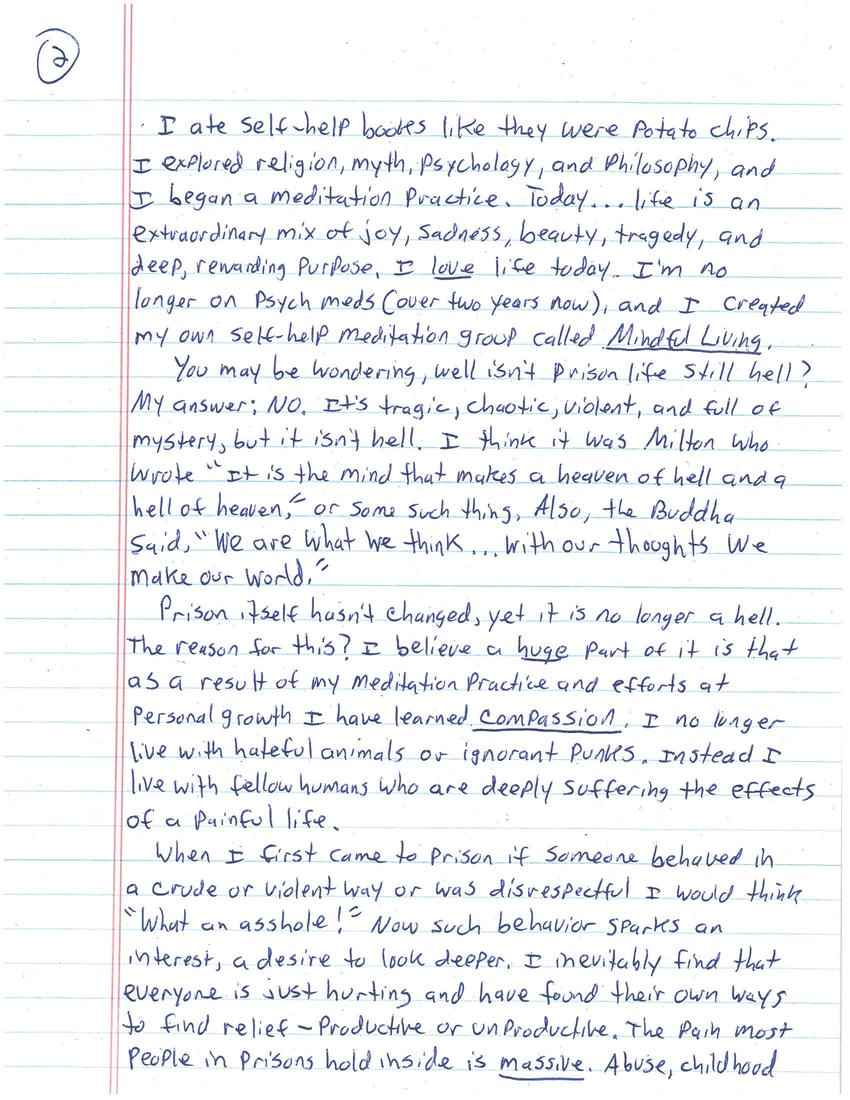 2
I ate self-help books like they were potato chips.
I explored religion, myth, psychology, and philosophy, and
I began a meditation practice. Today... life is an
extraordinary mix of joy, sadness, beauty, tragedy, and
deep, rewarding purpose. I love life today. I'm no
longer on psych meds (over two years now), and I created
my own self-help meditation group called Mindful Living.
You may be wondering, well isn't prison life still hell?
My answer: NO. It's tragic, chaotic, violent, and full of
mystery, but it isn't hell. I think it was Milton who
wrote "It is the mind that makes a heaven of hell and a
hell of heaven," or some such thing. Also, the Buddha
said, "We are what we think... with our thoughts we
make our world."
Prison itself hasn't changed, yet it is no longer a hell.
The reason for this? I believe a huge part of it is that
as a result of my meditation practice and efforts at
personal growth I have learned compassion. I no longer
live with hateful animals or ignorant punks. Instead I
live with fellow humans who are deeply suffering the effects
of a painful life.
When I first came to prison if someone behaved in
a crude or violent way or was disrespectful I would think
"What an asshole!" Now such behavior sparks an
interest, a desire to look deeper. I inevitably find that
everyone is just hurting and have found their own ways
to find relief - productive or unproductive. The pain most
people in prisons hold inside is massive. Abuse, childhood